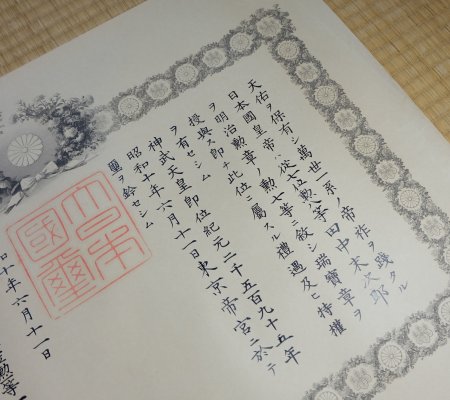 天佑ヲ保有シ萬世一系ノ帝祚ヲ踐タル
日本國皇帝ハ從七位勲八等田中末次郎
ヲ明治勲章ノ勲七等ニ敍シ瑞寶章ヲ
授與ス即チ此位ニ屬スル禮遇及ヒ特權
ヲ有セシム
神武天皇即位紀元二千五百九十五年
昭和十年六月十一日東京帝宮ニ於テ
璽ヲ鈐セシム
大日本
國璽
和十年六月十一日
勲等